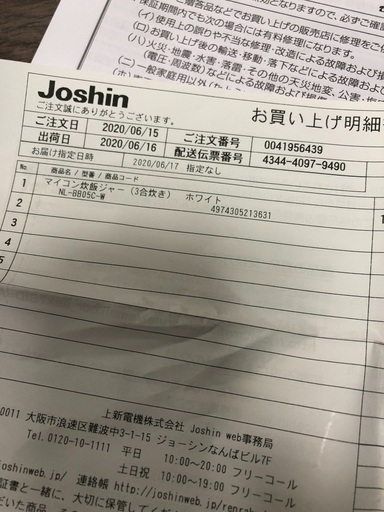 証期間内でも次の場合には有料修理になります。
(イ)使用上の誤りや不当な修理・改造による故障および
(ロ)お買い上げ後の輸送・移動・落下などによる故障および
(ハ)火災・地震・水害・落雷・その他の天災地変、公害・塩
(電圧・周波数)などによる故障および損
(ニ)一般家庭用以外
Joshin
ご注文誠にありがとうございます。
お買い上げ明細
ご注文日 2020/06/15 ご注文番号 0041956439
出荷日 2020/06/16 配送伝票番号 4344-4097-9490
お届け指定日時 2020/06/17 指定なし
No. 商品名 / 型番 / 商品コード
1 マイコン炊飯ジャー (3合炊き) ホワイト
NL-BB05C-W 4974305213631
2
3
4
5
上新電機株式会社 Joshin web事務局
0011 大阪市浪速区難波中3-1-15 ジョーシンなんばビル7F
Tel. 0120-10-1111 平日 10:00~20:00 フリーコール
土日祝 10:00~19:00 フリーコール
joshinweb.jp/ 連絡帳 http://joshinweb.jp/renrak
証書と一緒に、大切に保管してくだ